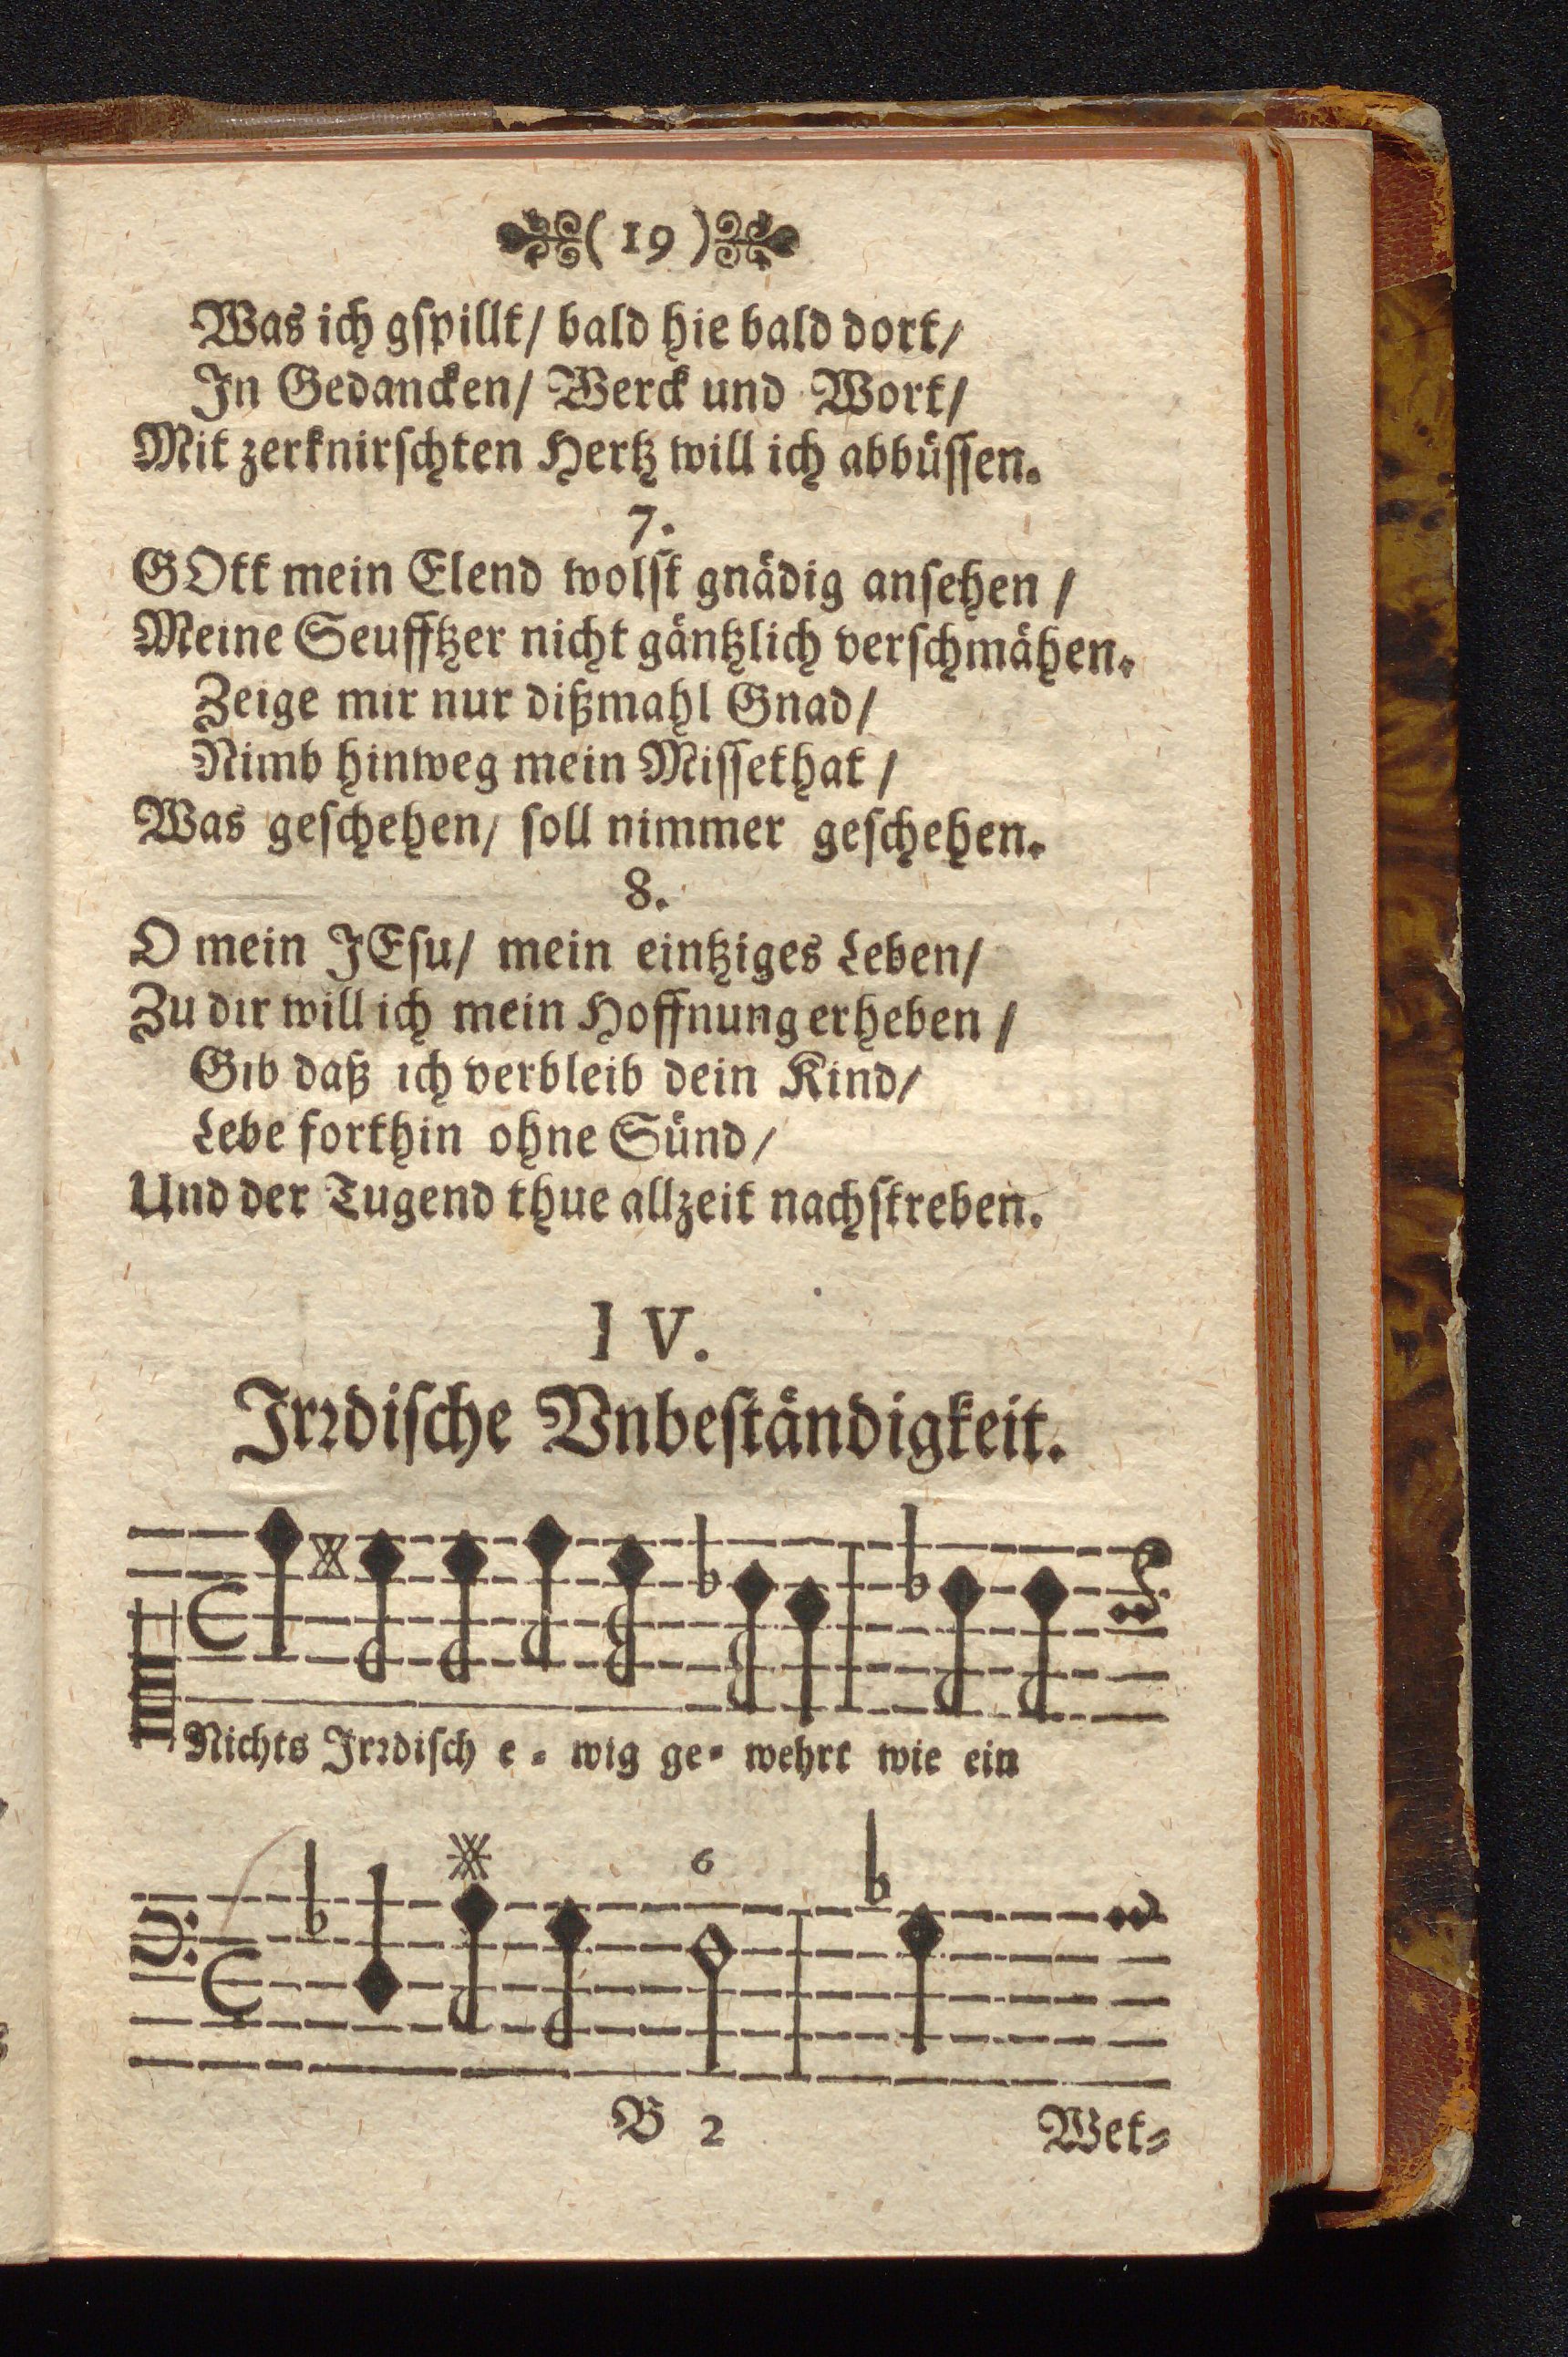 ( 19 )
Was ich gspillt/ bald hie bald dort/
In Gedancken/ Werck und Wort/
Mit zerknirschten Hertz will ich abbüssen.
7.
GOtt mein Elend wolst gnädig ansehen /
Meine Seufftzer nicht gäntzlich verschmähen.
Zeige mir nur dißmahl Gnad/
Nimb hinweg mein Missethat /
Was geschehen/ soll nimmer geschehen.
8.
O mein JEsu/ mein eintziges Leben/
Zu dir will ich mein Hoffnung erheben /
Gib daß ich verbleib dein Kind/
Lebe forthin ohne Sünd/
Und der Tugend thue allzeit nachstreben.
IV.
Irrdische Vnbeständigkeit.
Nichts Irrdisch e - wig ge- wehrt wie ein
6
B 2 Wet-